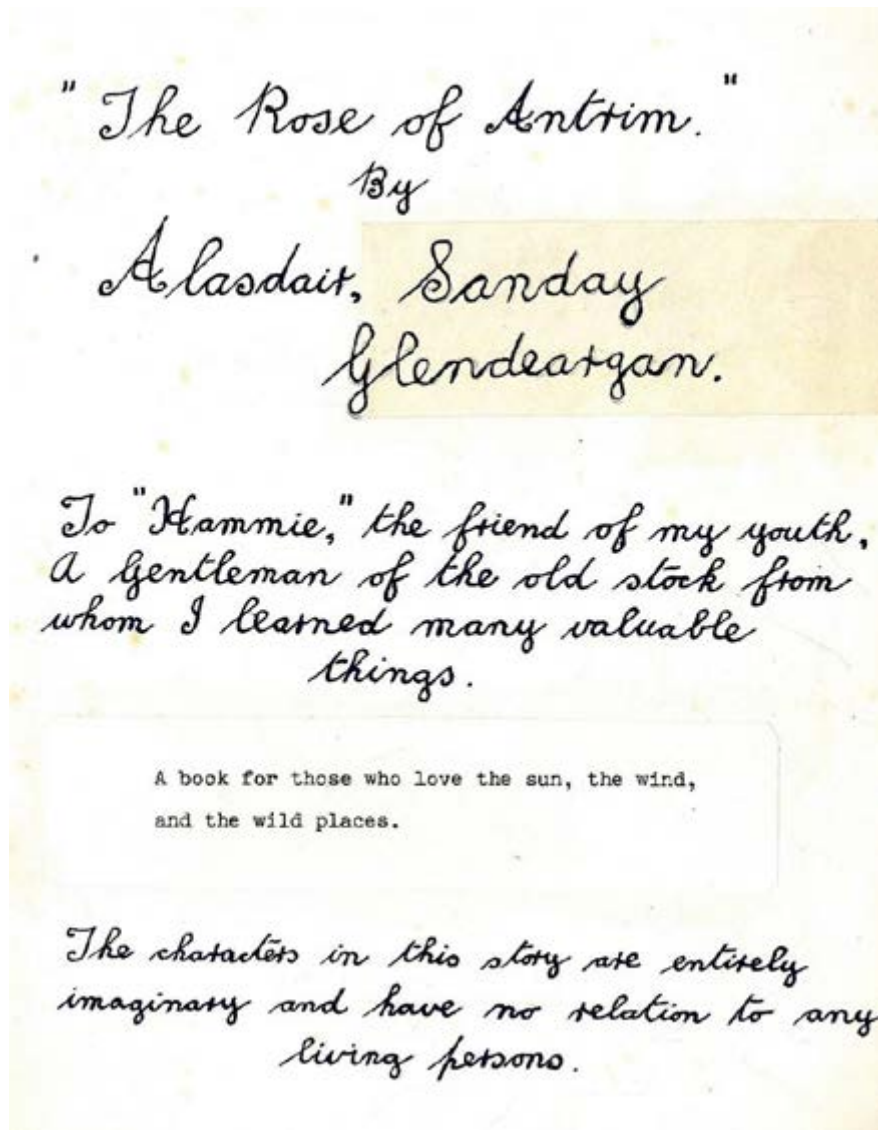 "The Rose of Antrim."
By
Alasdair, Sanday
Glendeargan.
To "Hammie," the friend of my youth,
A Gentleman of the old stock from
whom I learned many valuable
things.
A book for those who love the sun, the wind,
and the wild places.
The characters in this story are entirely
imaginary and have no relation to any
living persons.